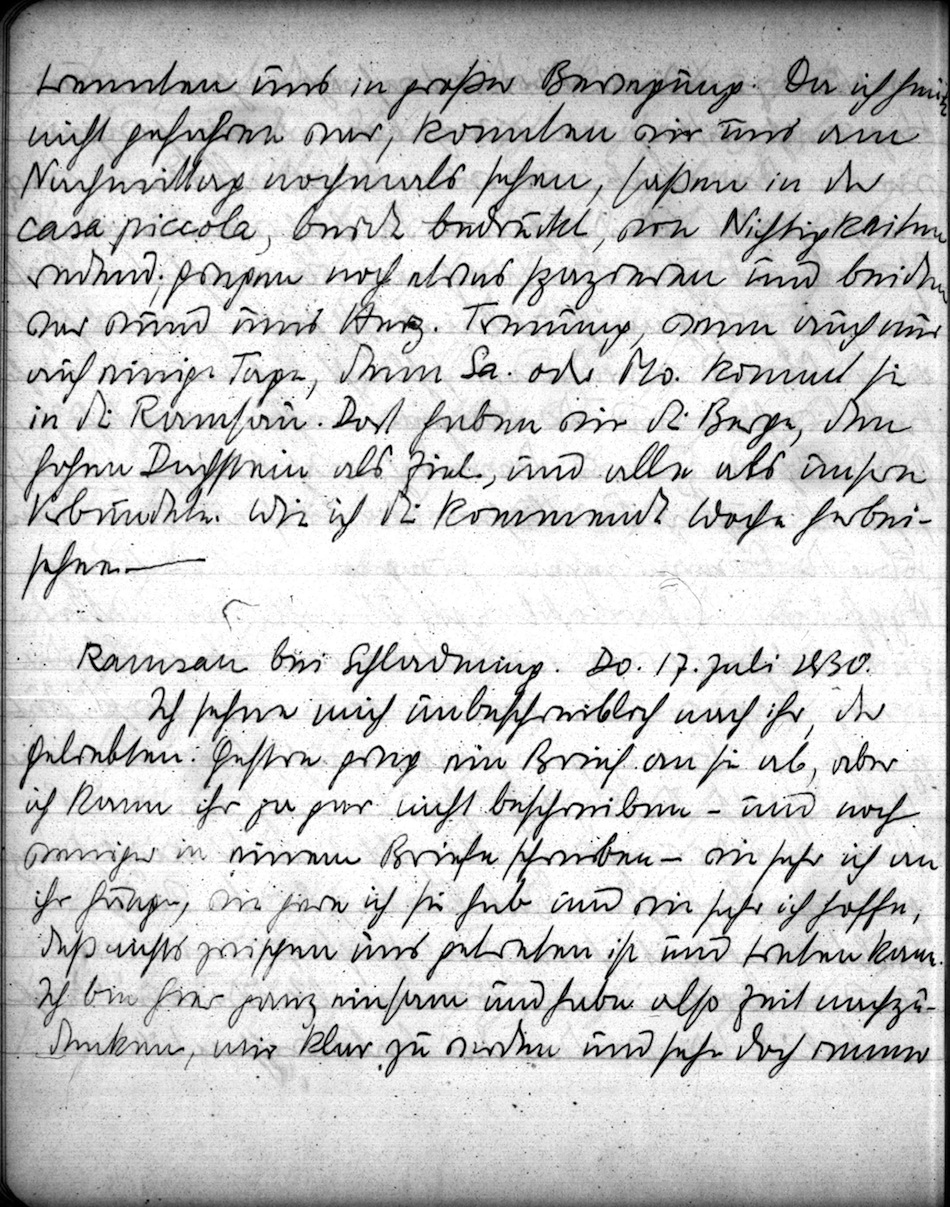 trennten uns in großer Bewegung. Da ich heute
nicht gefahren war, konnten wir uns am
Nachmittag nochmals sehen, saßen in der
casa piccola, beide bedrückt, von Nichtigkeiten
redend; gingen noch etwas spazieren und beiden
war wund ums Herz. Trennung, wenn auch nur
auf einige Tage, denn Sa. oder Mo. kommt sie
in die Ramsau. Dort haben wir die Berge, den
hohen Dachstein als Ziel, und alle als unsere
Verbündete. Wie ich die kommende Woche herbei-
sehne.—
Ramsau bei Schladming. Do. 17. Juli 1930.
Ich sehne mich unbeschreiblich nach ihr, der
Geliebten. Gestern ging ein Brief an sie ab, aber
ich kann ihr ja gar nicht beschreiben – und noch
weniger in einem Briefe schreiben – wie sehr ich an
ihr hänge, wie gern ich sie hab und wie sehr ich hoffe,
daß nichts zwischen uns getreten ist und treten kann.
Ich bin hier ganz einsam und habe also Zeit nachzu-
denken, mir klar zu werden und sehe doch immer